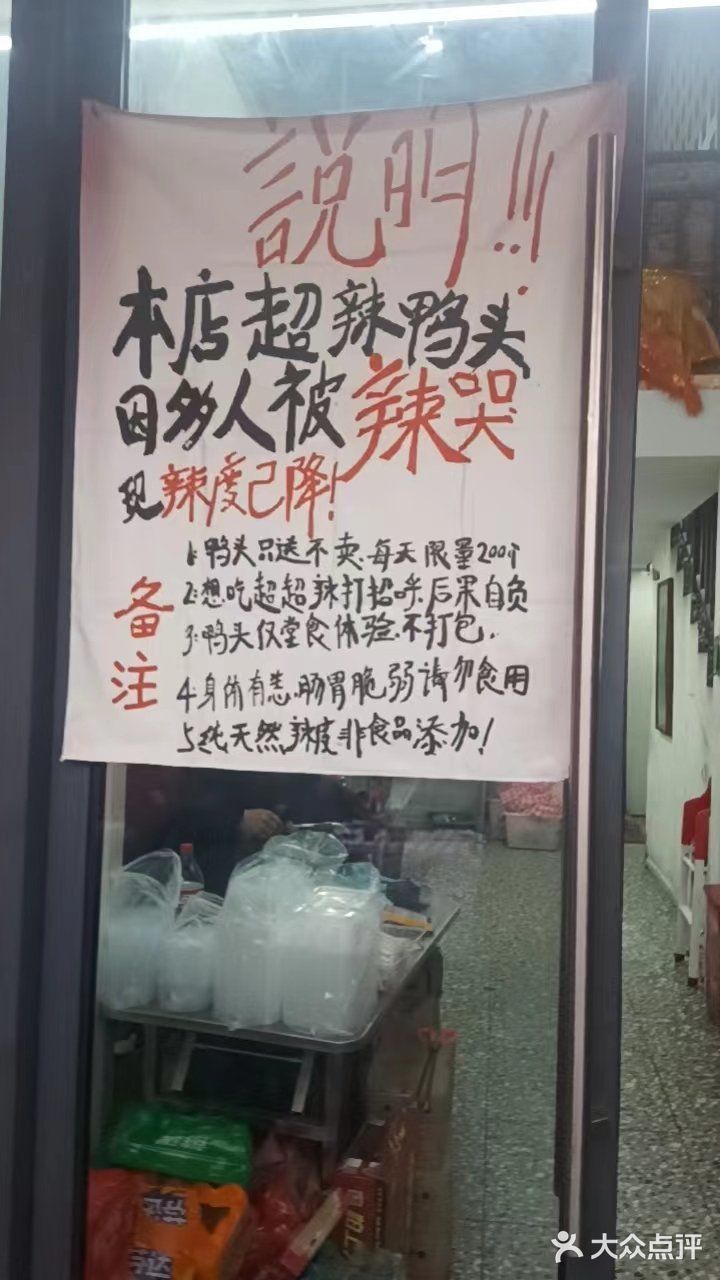 說明!!!
本店超辣鸭头
因多人被辣哭
现辣度已降!
备注
1:鸭头只送不卖.每天限量200个
2:想吃超超辣打招呼.后果自负
3:鸭头仅堂食体验.不打包.
4.身体有恙.肠胃脆弱请勿食用
5纯天然辣度非食品添加!
大众点评